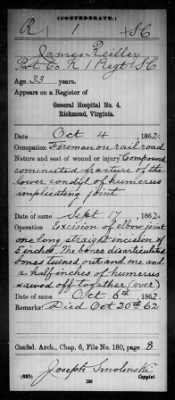 (CONFEDERATE.)
R 1 SC
James Reilley
Pvt Co. K 1 Regt SC
Age 33 years.
Appears on a Register of
General Hospital No. 4,
Richmond, Virginia.
Date Oct 4, 1862.
Occupation Foreman on railroad
Nature and seat of wound or injury Compound
comminuted fracture of the
lower condyl of humerus
implicating joint
Date Sept 17, 1862.
Operation Excision of elbow joint
one long straight incision of
5 inches. The bones disarticulated
bones turned out and one and
a half inches of humerus
sawed off together (over)
Date Oct 6th, 1862.
Remarks: Died Oct 20th 62
Confed. Arch., Chap. 6, File No. 180, page 8
Joseph Smolenski
(635) Copyist.